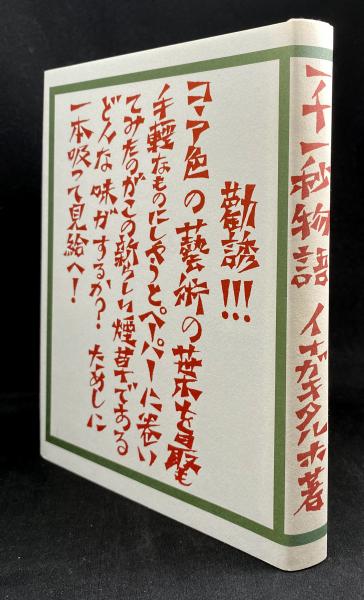 勸誘!!!
ココア色の藝術の葉を最も
手輕なものにしやうとペーパーに卷い
てみたのがこの新らしい煙草である
どんな味がするか? ためしに
一本吸って見給へ!
一千一秒物語 イナガキタルホ著